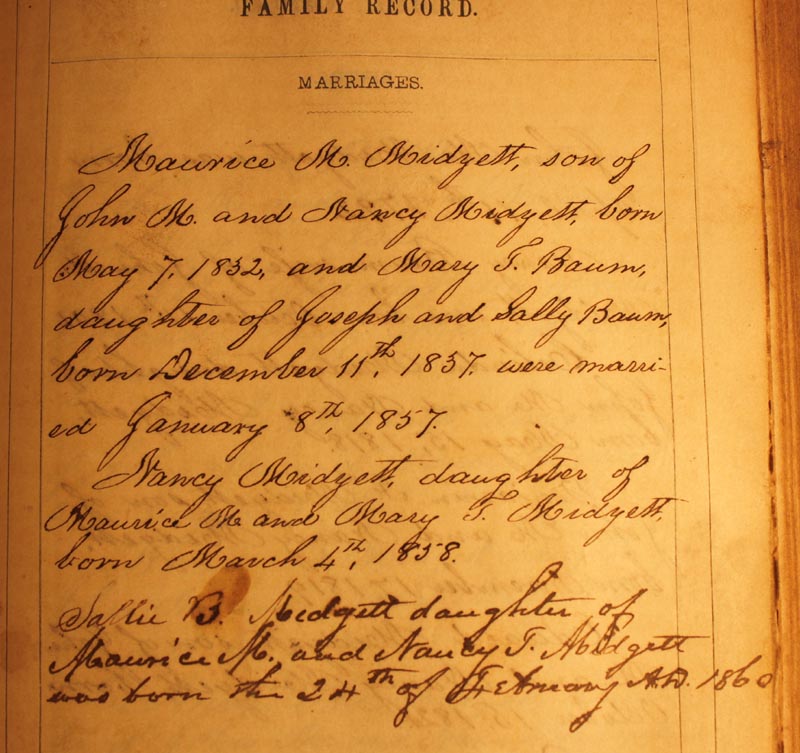 FAMILY RECORD.
MARRIAGES.
Maurice M. Midyett, son of
John M. and Nancy Midyett, born
May 7, 1832, and Mary T. Baum,
daughter of Joseph and Sally Baum,
born December 11th, 1837. were marri-
ed January 8th, 1857.
Nancy Midyett, daughter of
Maurice M. and Mary T. Midyett,
born March 4th, 1858.
Sallie B. Midgett daughter of
Maurice M. and Nancy T. Midgett
was born the 24th of February A.D. 1860